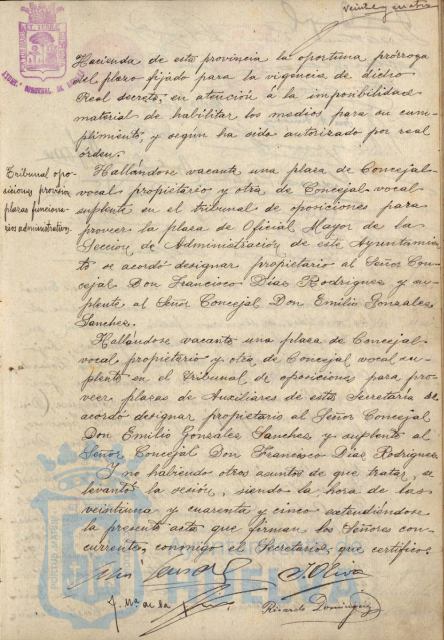 veinticuatro
Hacienda de esta provincia la oportuna prórroga
del plazo fijado para la vigencia de dicho
Real decreto, en atención á la imposibilidad
material de habilitar los medios para su cum-
plimiento, y según ha sido autorizado por real
órden.
Tribunal opo-
siciones provisión
plazas funciona-
rios administrativos
Hallándose vacante una plaza de Concejal
vocal propietario y otra de Concejal vocal
suplente en el tribunal de oposiciones para
proveer la plaza de Oficial Mayor de la
Sección de Administración de este Ayuntamien-
to se acordó designar propietario al Señor Con-
cejal Don Francisco Diaz Rodriguez y su-
plente al Señor Concejal Don Emilio Gonzalez
Sanchez.
Hallándose vacante una plaza de Concejal
vocal propietario y otra de Concejal vocal su-
plente en el Tribunal de oposiciones para pro-
veer plazas de Auxiliares de esta Secretaria se
acordó designar propietario al Señor Concejal
Don Emilio Gonzalez Sanchez y suplente al
Señor Concejal Don Francisco Diaz Rodriguez
Y no habiendo otros asuntos de que tratar, se
levantó la sesión, siendo la hora de las
veintiuna y cuarenta y cinco extendiéndose
la presente acta que firman los Señores con-
currentes, conmigo el Secretario, que certifico.
J. Oliva
J. Mª de la
Ricardo Dominguez
HUELVA